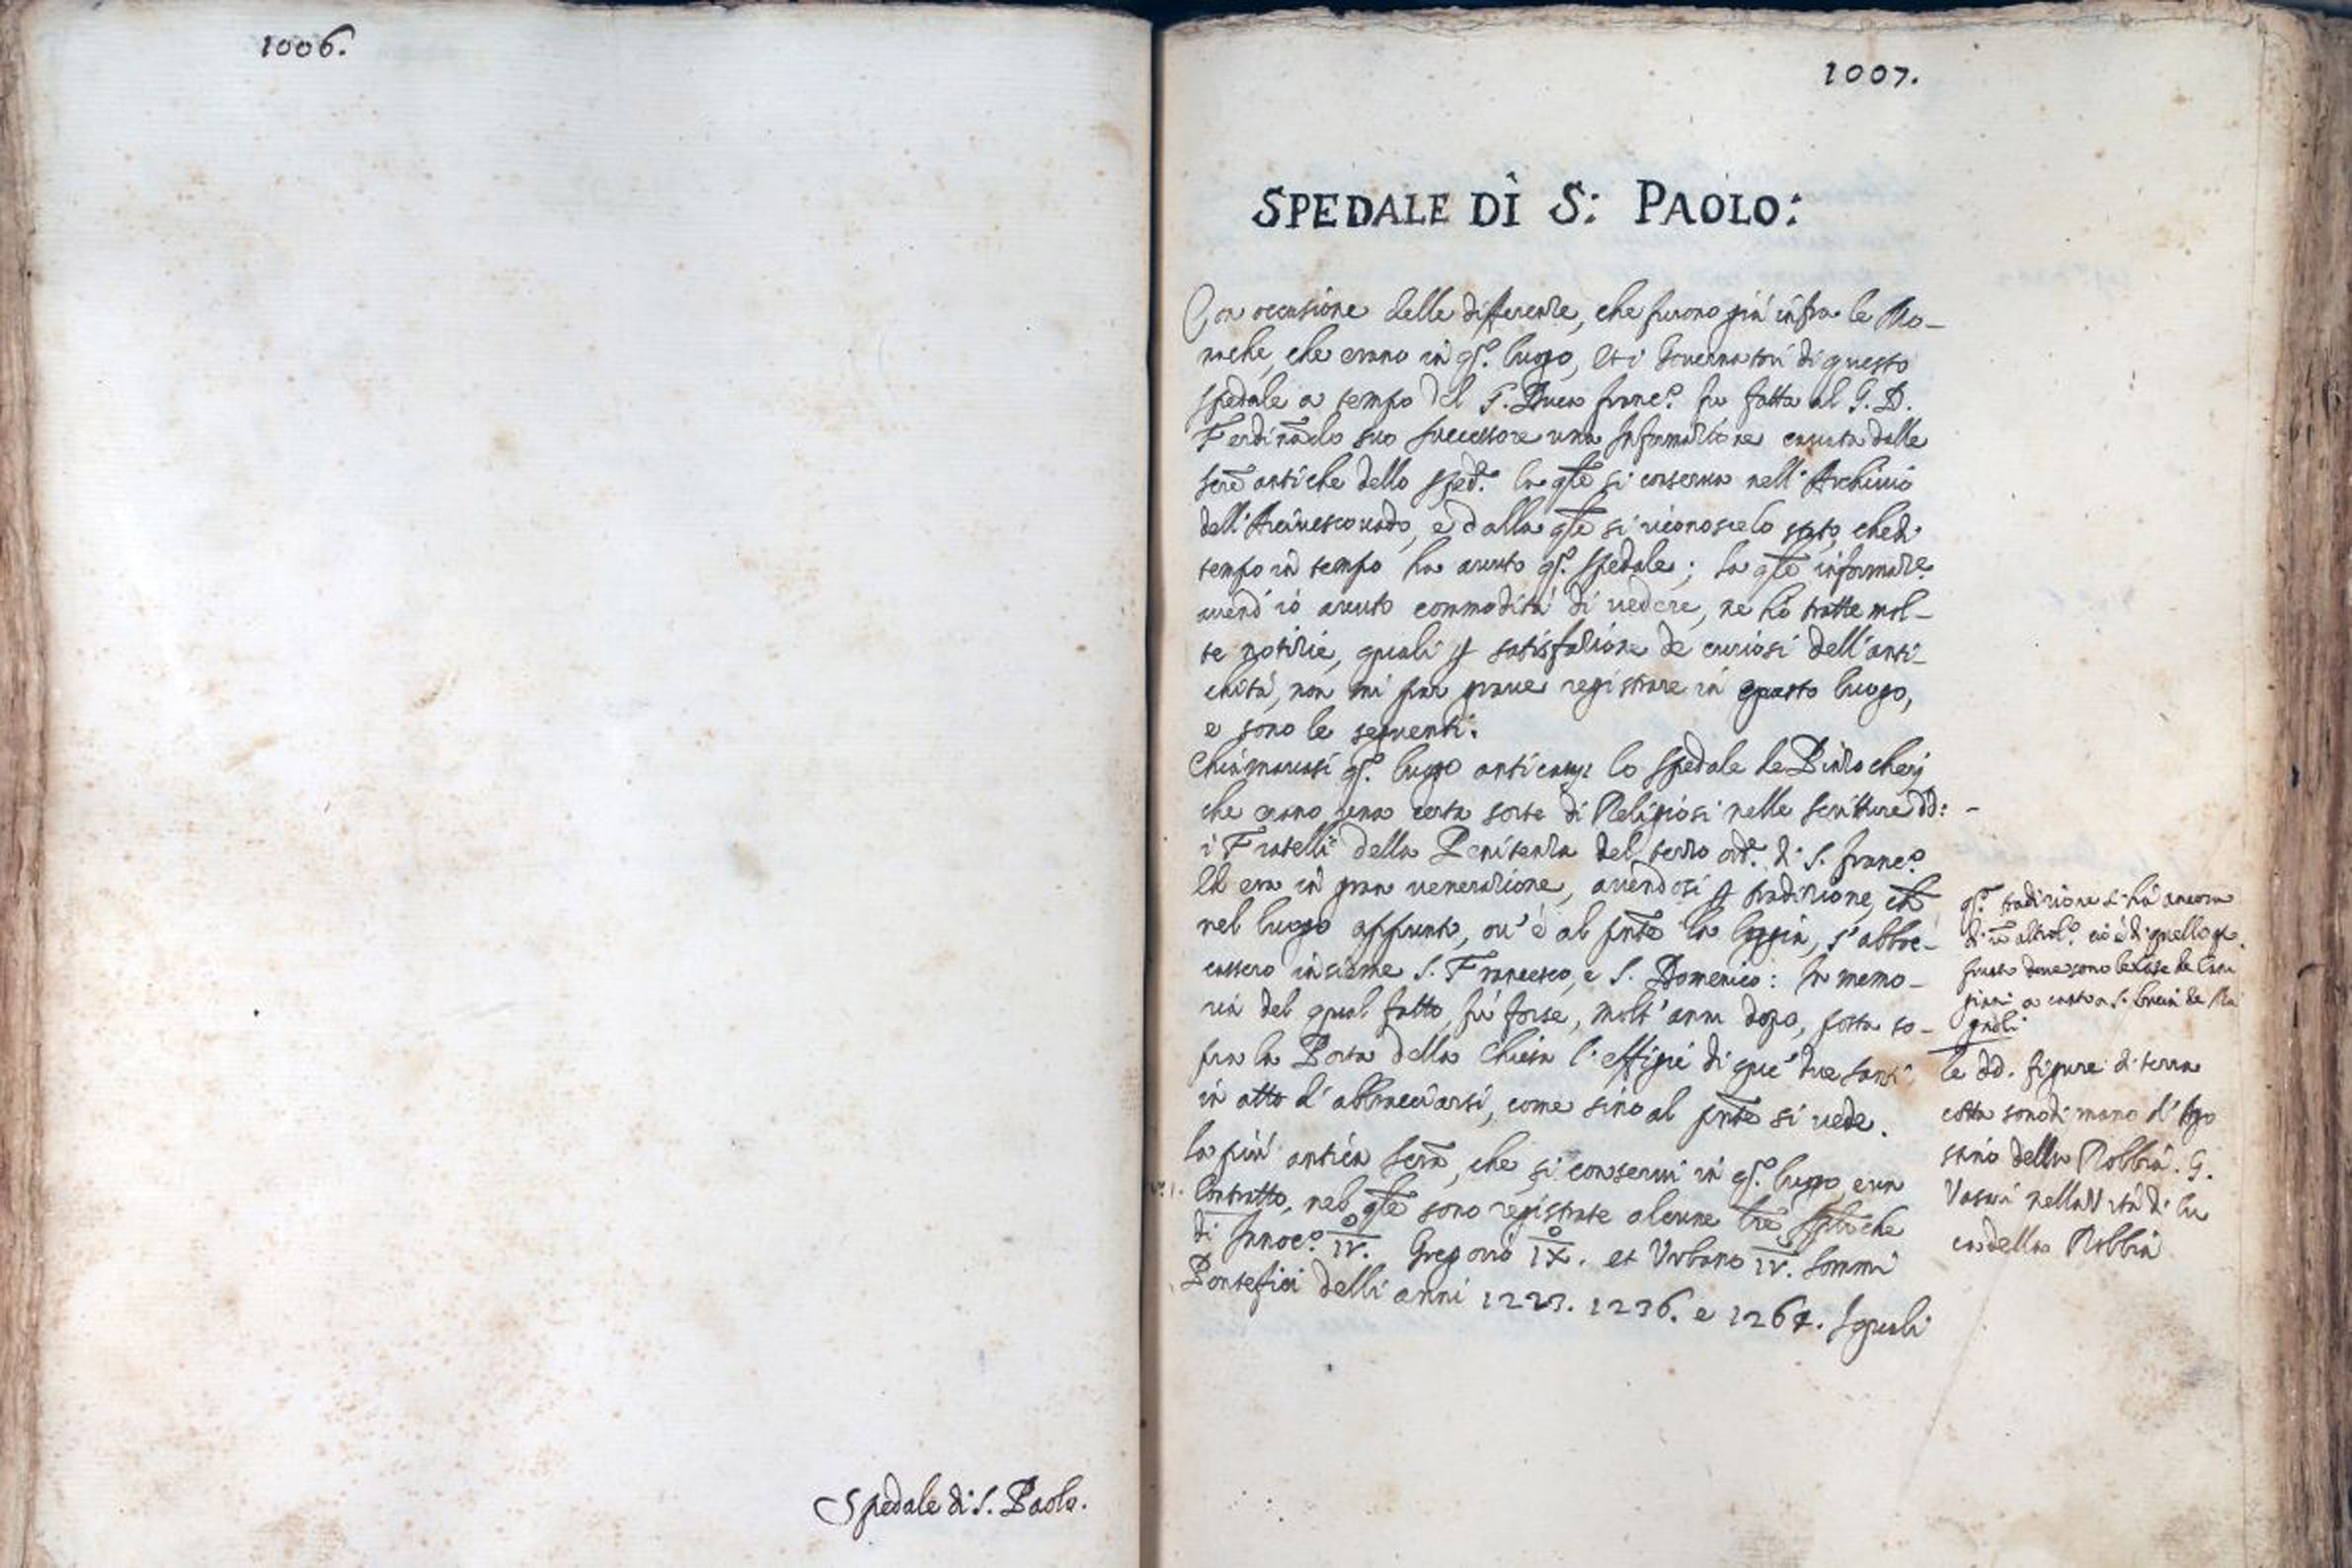 1006.
Spedale di S. Paolo.
1007.
SPEDALE DI S: PAOLO:
Con occasione delle differenze, che furono già infra le Mo-
nache, che erano in qs.o luogo, et i Governatori di questo
spedale a tempo del G. Duca Franc.o fu fatta al G. D.
Ferdinãdo suo successore una Informazione cavata dalle
scre antiche dello sped.e la qle si conserva nell' Archivio
dell' Arcivescovado, e dalla qle si riconosce lo stato, che di
tempo in tempo ha avuto qs.o spedale; la qle informaz.e
avend' io avuto commodità di vedere, ne hò tratte mol-
te notizie, quali p satisfazione de curiosi dell' anti-
chità, non mi par grave registrare in questo luogo,
e sono le seguenti.
Chiamavasi qs.o luogo anticam: lo spedale de Pinzocheri
che erano una certa sorte di Religiosi nelle scritture dd:
i Fratelli della Penitenza del terzo ord.e di S. Franc.o
Et era in gran venerazione, avendosi p tradizione, che
nel luogo appunto, ov' è al pnte la loggia, s' abboc-
cassero insieme S. Francesco, e S. Domenico: In memo-
ria del qual fatto, fù forse, molt' anni dopo, posta so-
pra la Porta della Chiesa l' effigie di que' due Santi
in atto d' abbracciarsi, come sino al pnte si vede.
la più antica scra, che si conservi in qs.o luogo, è un
n.o 1. Contratto, nel qle sono registrate alcune lre Apliche
di Innoc.o IV. Gregorio IX. et Urbano IV. Sommi
Pontefici delli anni 1223. 1236. e 1264. I quali
qs.a tradizione si hà ancora
di ũ altro l.o ciò è di quello
dove sono le Case de Cani
giani a canto a S. Lucia de Ma
gnoli
le dd. figure di terra
cotta sono di mano d' Ago
stino della Robbia. G.
Vasari nella Vita di Lu
ca della Robbia